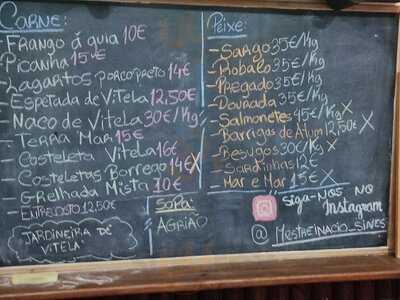 CARNE:
- FRANGO á guia 10€
Picanha 15€
- Lagartos PORCO PRETO 14€
- Espetada de Vitela 12,50€
- Naco de Vitela 30€/Kg
- Terra Mar 15€
- Costeleta Vitela 16€
- Costeletas Borrego 14€ X
- Grelhada Mista 10€
- ENTRECOSTO 12.50€
JARDINEIRA DE
VITELA
SOPA:
AGRIÃO
Peixe:
- Sargo 35€/Kg
- Robalo 35€/Kg
- Pregado 35€/Kg
- Dourada 35€/Kg
- Salmonetes 45€/Kg X
- Barrigas de Atum 12,50€ X
- Besugos 30€/Kg X
- Sardinhas 12€
- Mar e Mar 15€ X
Siga-NOS NO
Instagram
@ MESTREINACIO_SINES